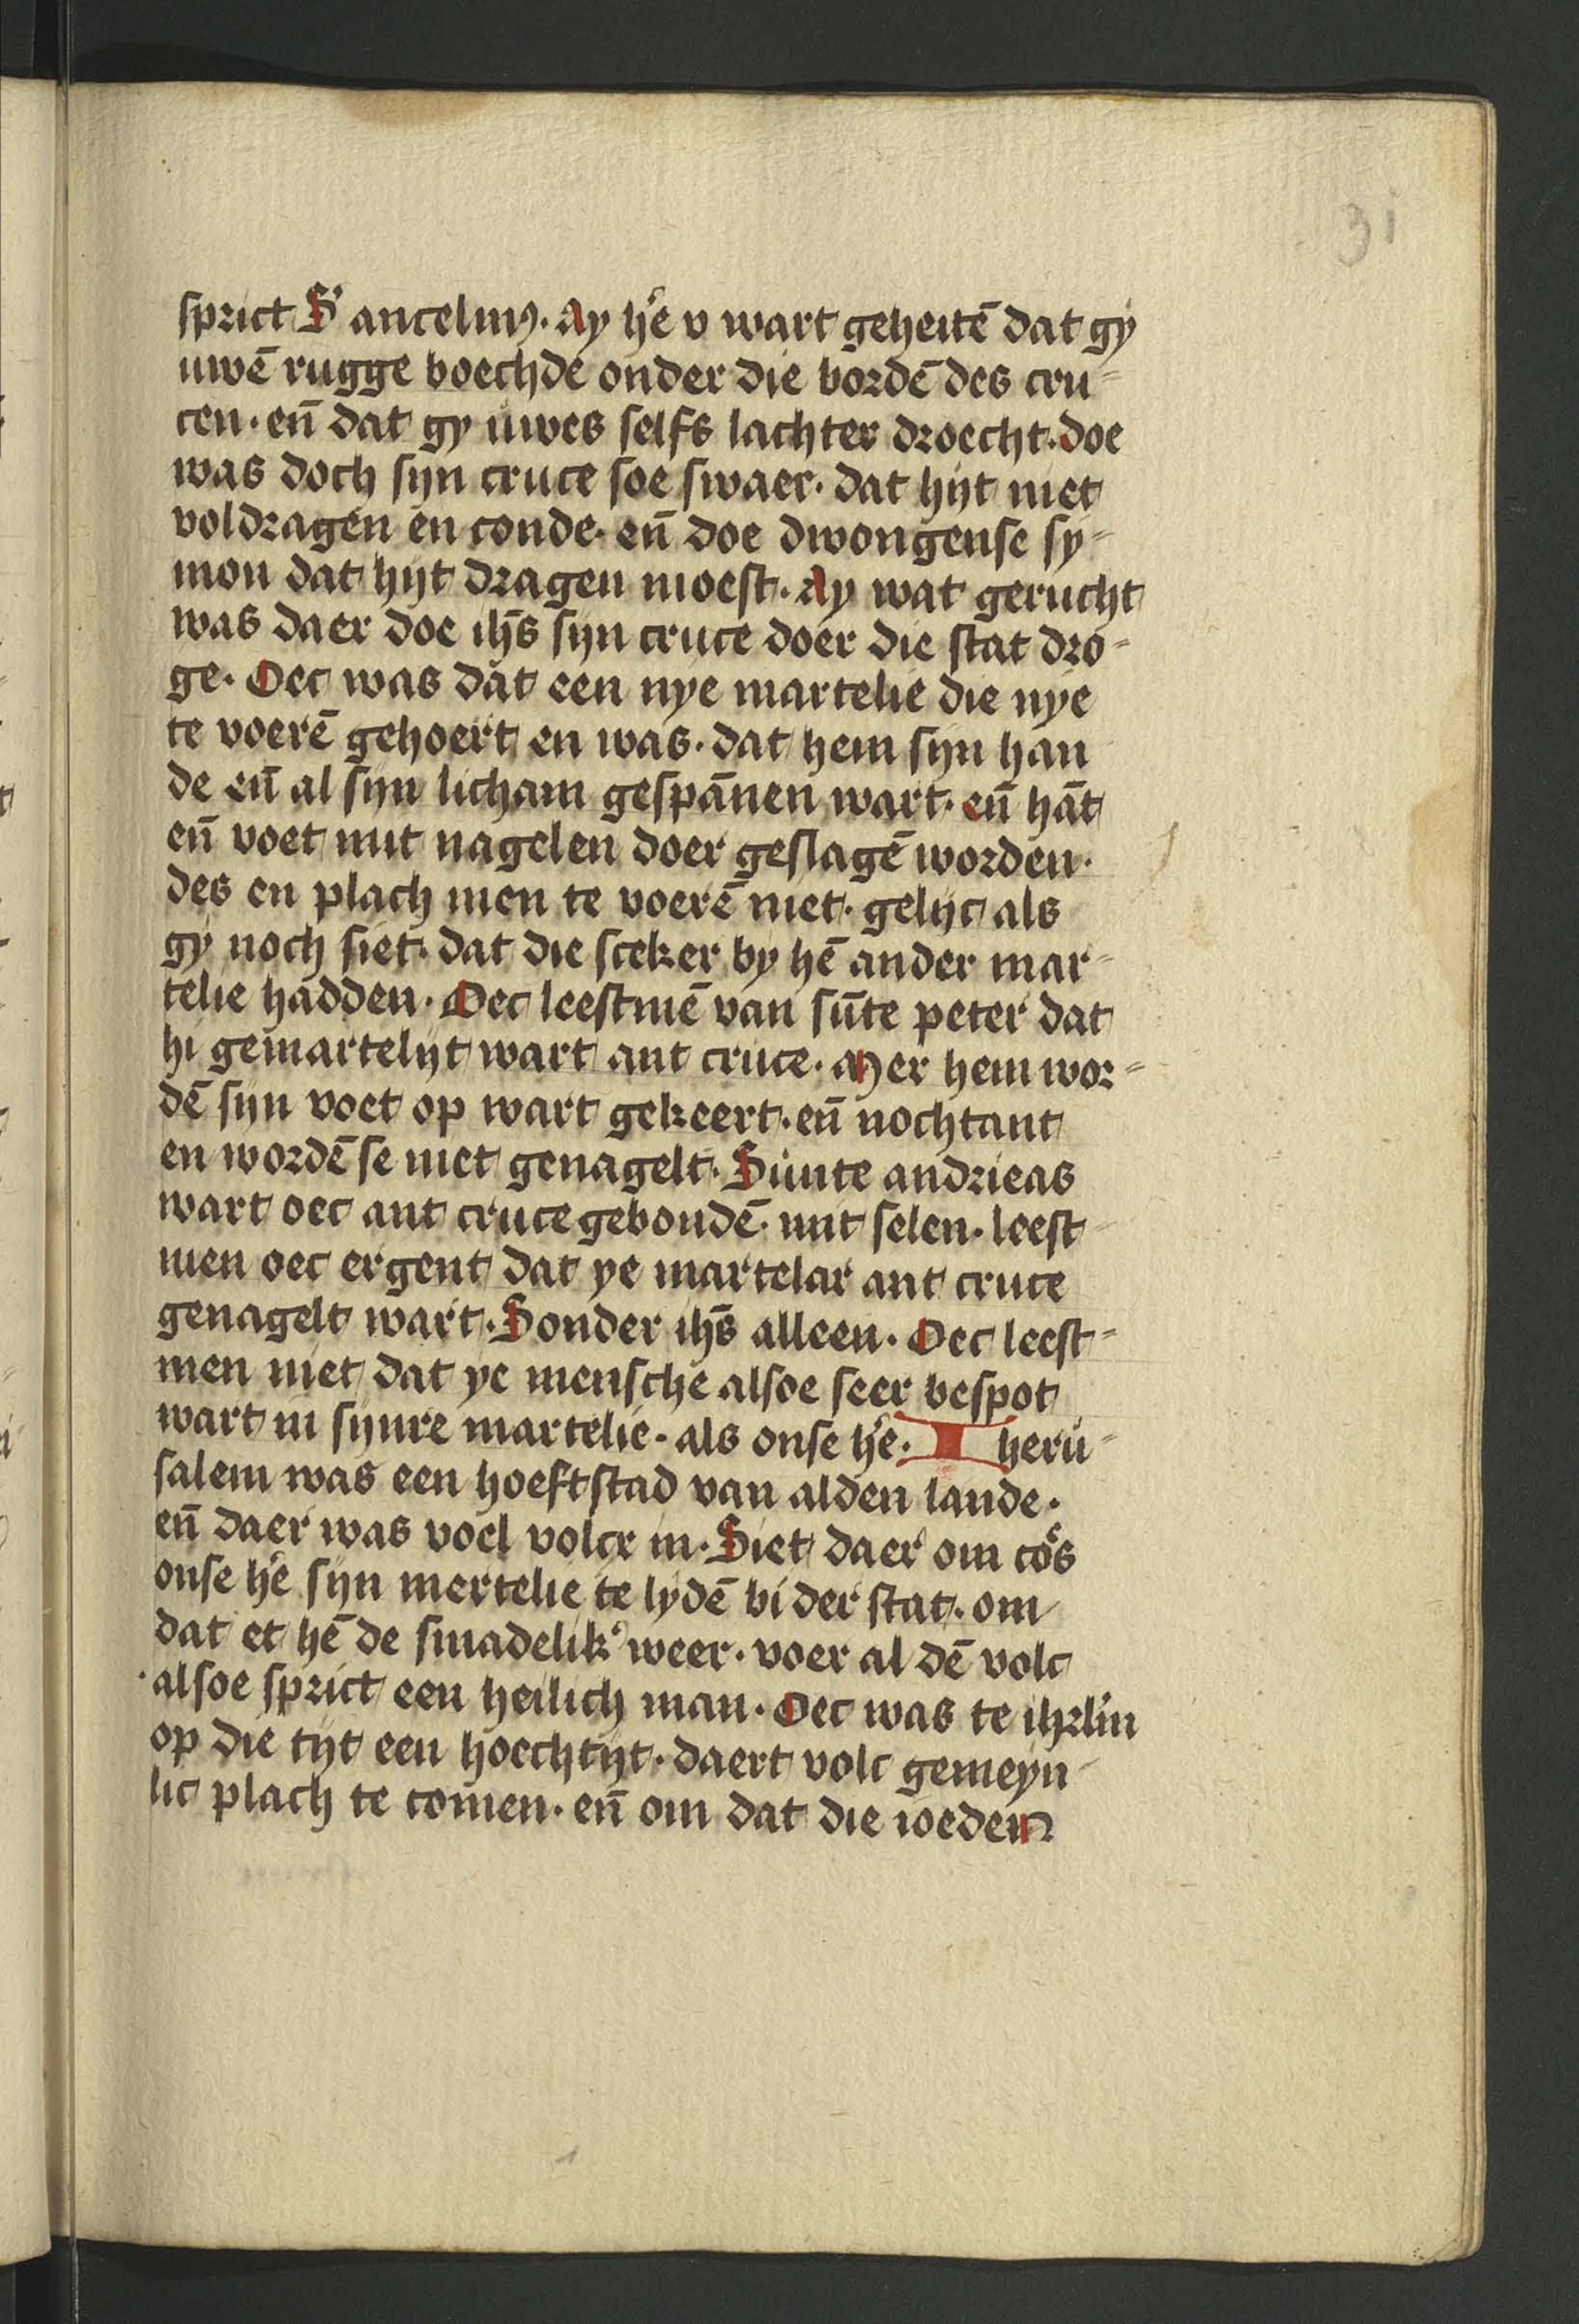 31
sprict S' ancelmꝰ. Ay he͛ v wart geheitē dat gy
uwē rugge boechde onder die bordē des cru⸗
cen. en̄ dat gy uwes selfs lachter droecht. doe
was doch syn cruce soe swaer. dat hijt niet
voldragen en conde. en̄ doe dwongense sy⸗
mon dat hijt dragen moest. Ay wat gerucht
was daer doe ihs̄ syn cruce doer die stat dro⸗
ge. Oec was dat een nye martelie die nye
te voerē gehoert en was. dat hem syn han
de en̄ al syn licham gespānen wart. en̄ hāt
en̄ voet mit nagelen doer geslagē worden.
des en plach men te voerē niet. gelijc als
gy noch siet. dat die sceker by hē ander mar⸗
telie hadden. Oec leestmē van sūte peter dat
hi gemartelijt wart ant cruce. Mer hem wor⸗
dē syn voet op wart gekeert. en̄ nochtant
en wordē se niet genagelt. Sunte andrieas
wart oec ant cruce gebondē. mit selen. leest⸗
men oec ergent dat ye martelar ant cruce
genagelt wart. Sonder ihs̄ alleen. Oec leest⸗
men niet dat ye mensche alsoe seer bespot
wart in synre martelie. als onse he͛. Iheru⸗
salem was een hoeftstad van alden lande.
en̄ daer was voel volcx in. Siet daer om co͛s
onse he͛ syn mertelie te lydē bi der stat. om
dat et hē de smadelik' weer. voer al dē volc
alsoe sprict een heilich man. Oec was te ihrl'm
op die tijt een hoechtijt. daert volc gemeyn⸗
lic plach te comen. en̄ om dat die ioeden